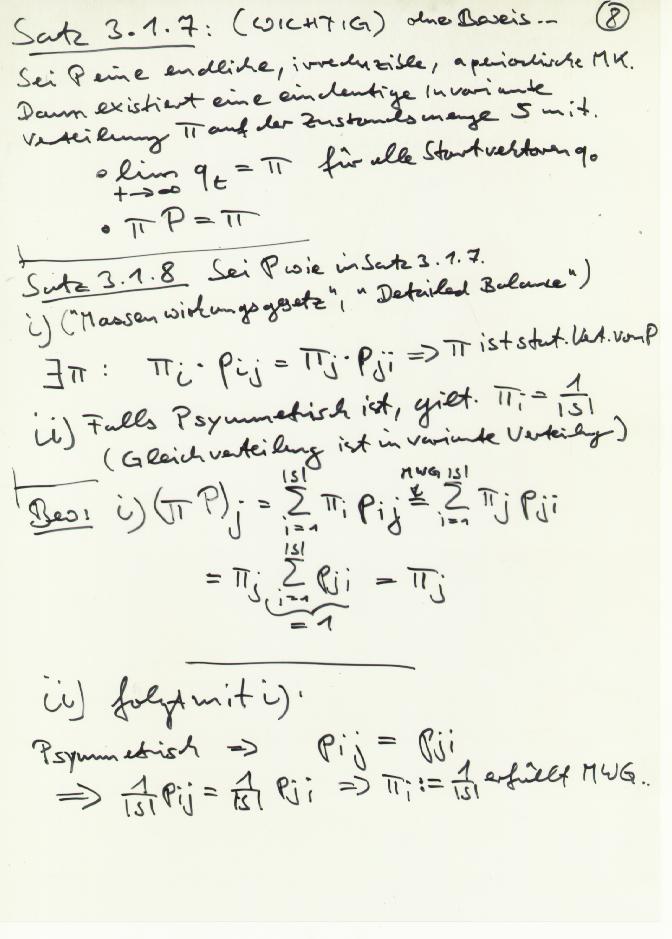 Satz 3.1.7: (WICHTIG) ohne Beweis... ⑧
Sei P eine endliche, irreduzible, aperiodische MK.
Dann existiert eine eindeutige Invariante
Verteilung π auf der Zustandsmenge S mit.
• lim_{t→∞} q_t = π für alle Startvektoren q₀
• π P = π
Satz 3.1.8 Sei P wie in Satz 3.1.7.
i) ("Massenwirkungsgesetz", "Detailed Balance")
∃π: π_i · p_ij = π_j · p_ji ⇒ π ist stat. Vert. von P
ii) Falls P symmetrisch ist, gilt. π_i = 1/|S|
(Gleichverteilung ist invariante Verteilung)
Bew: i) (π P)_j = ∑_{i=1}^{|S|} π_i p_ij =^{MWG} ∑_{i=1}^{|S|} π_j p_ji
= π_j ∑_{i=1}^{|S|} p_ji = π_j
= 1
ii) folgt mit i).
P symmetrisch ⇒ p_ij = p_ji
⇒ 1/|S| p_ij = 1/|S| p_ji ⇒ π_i := 1/|S| erfüllt MWG..